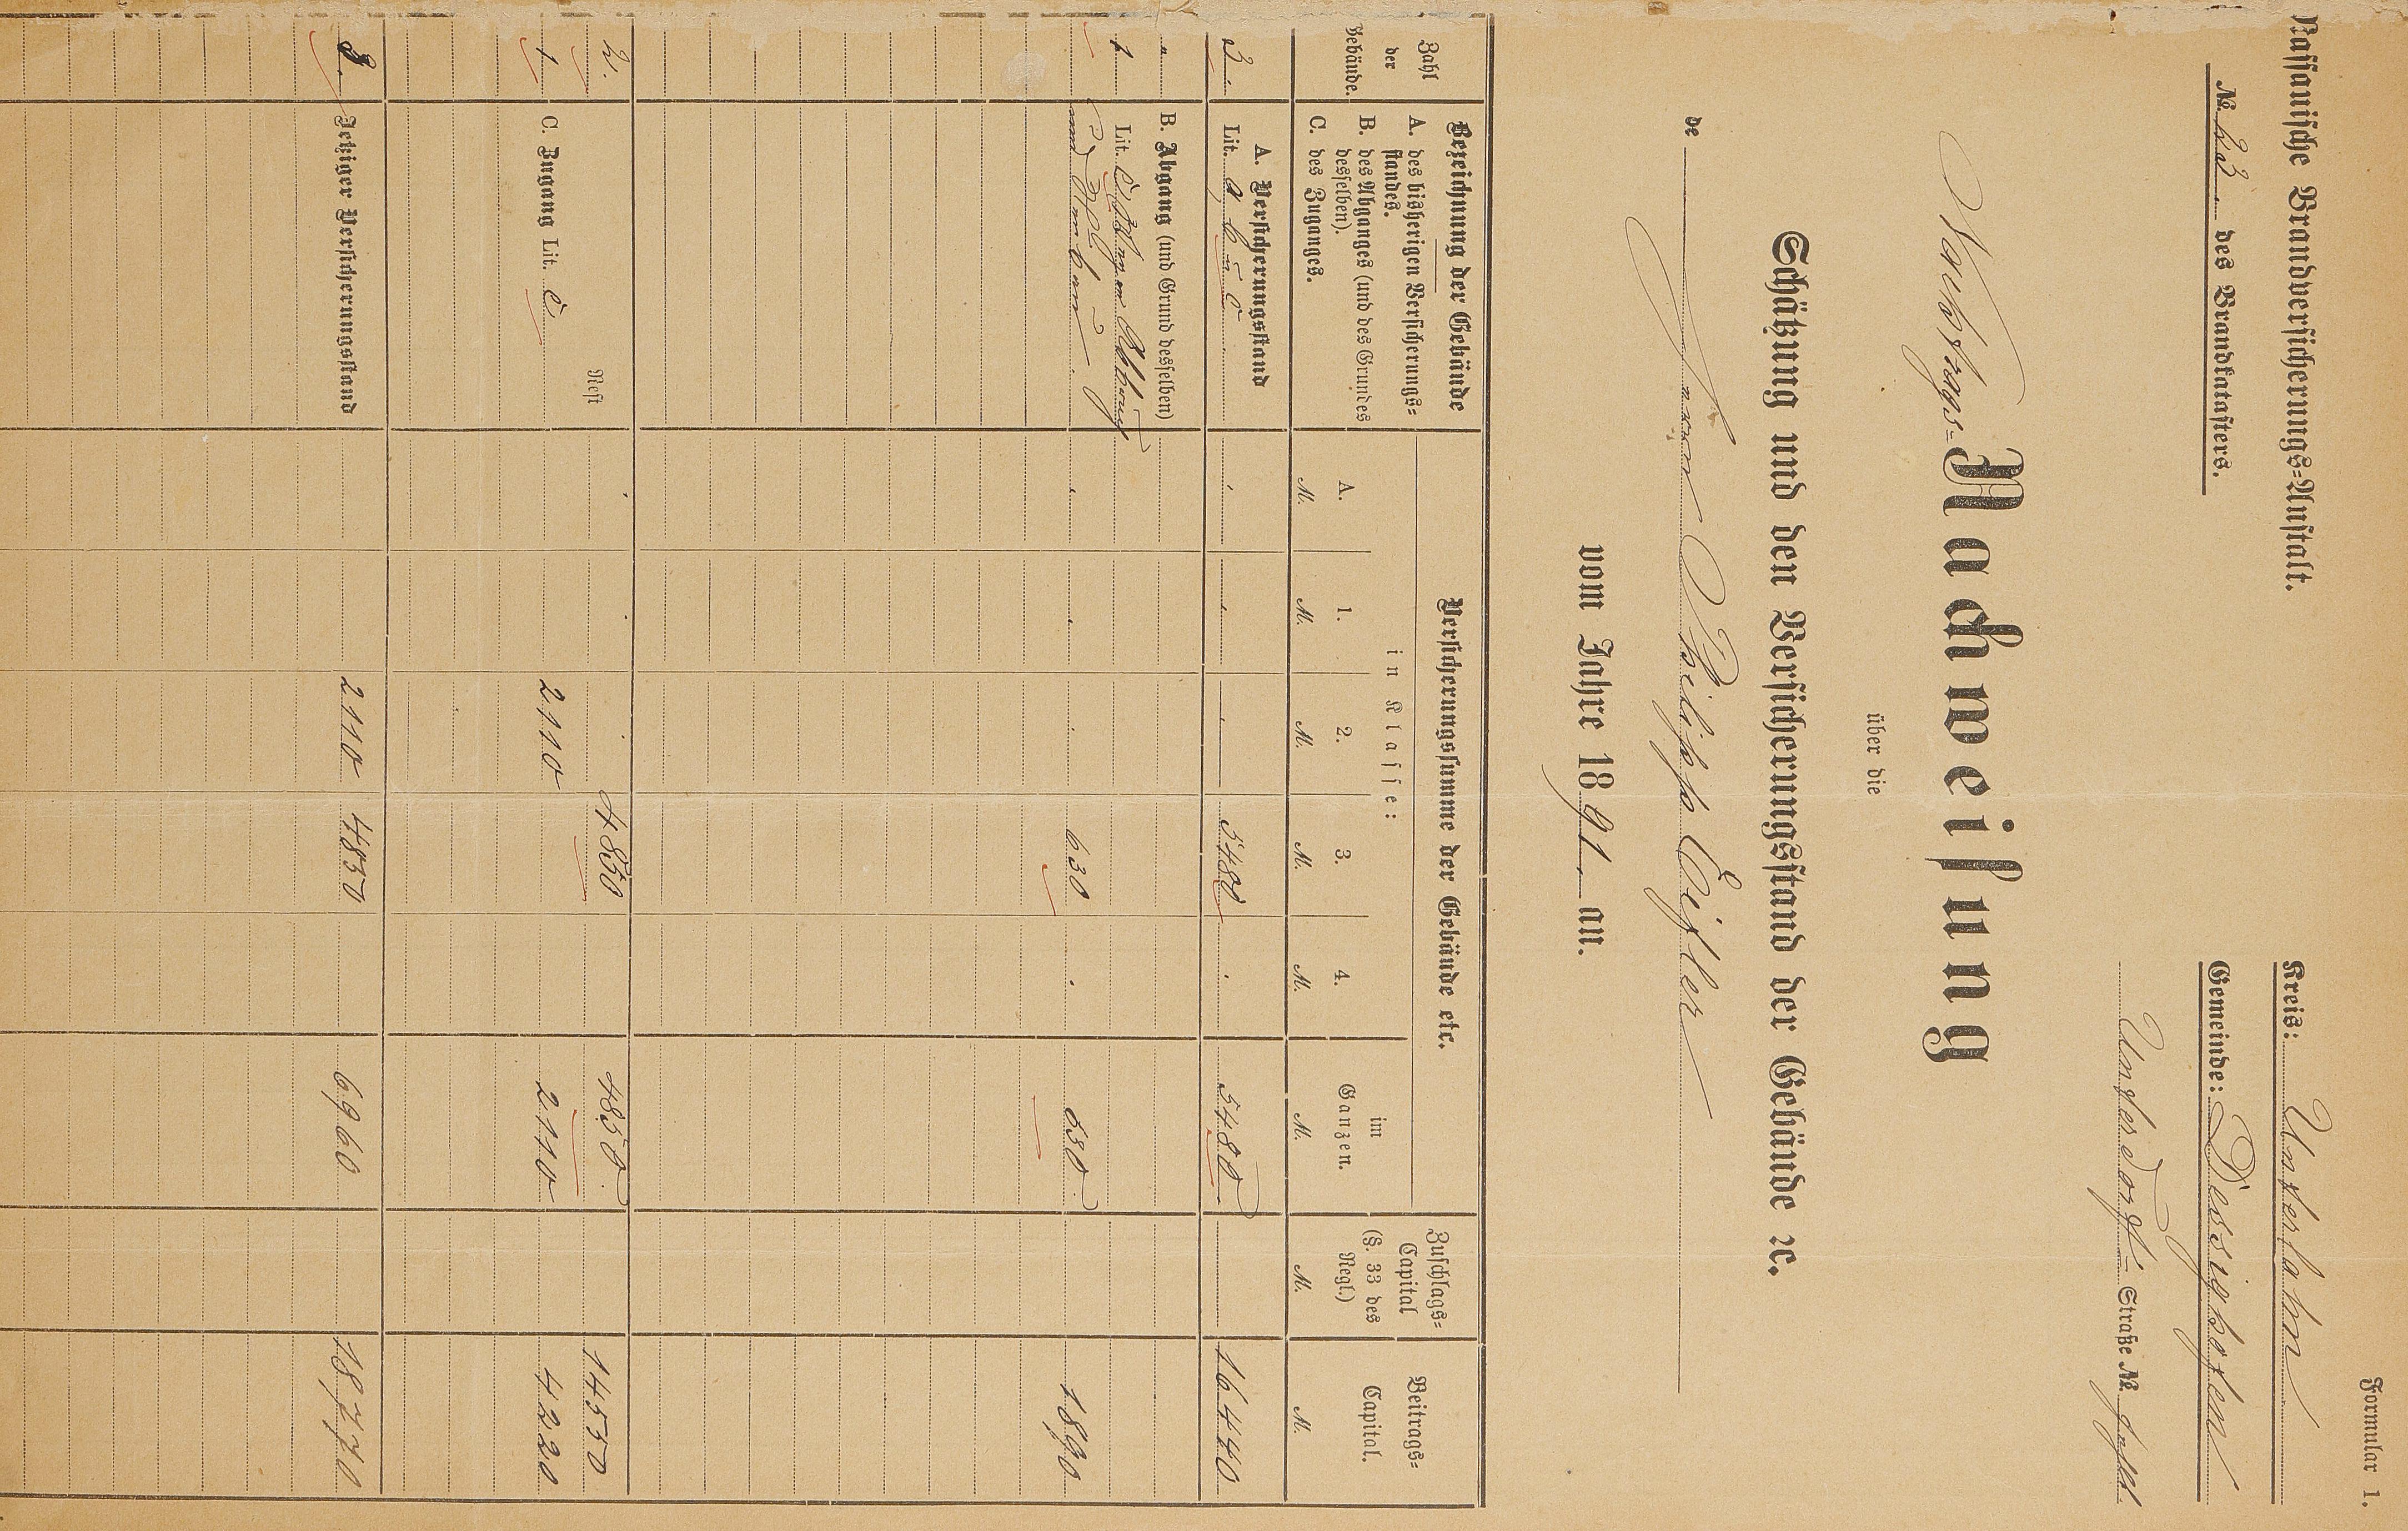 Formular 1.
Nassauische Brandversicherungs-Anstalt.
Kreis: Unterlahn
№ des Brandkatasters.
Gemeinde: Dessighofen
Unterdorf- Straße №
Nachtrags- Nachweisung
über die
Schätzung und den Versicherungsstand der Gebäude ꝛc.
de Philipp Eisler
vom Jahre 1891 an.
Zahl der Gebäude.
Bezeichnung der Gebäude
A. des bisherigen Versicherungs-
standes.
B. des Abganges (und des Grundes
desselben).
C. des Zuganges.
Versicherungssumme der Gebäude etc.
in Klasse:
A. 1. 2. 3. 4.
M. M. M. M. M.
im Ganzen.
M.
Zuschlags-
Capital
(§. 33 des
Regl.)
M.
Beitrags-
Capital.
M.
A. Versicherungsstand
3 Lit. a, b u. c 5480 5480 16440
B. Abgang (und Grund desselben)
1 Lit. c
630 630 1890
2. Rest 4850 4850 14550
1 C. Zugang Lit. c 2110 2110 4220
3. Jetziger Versicherungsstand 2110 4850 6960 18770